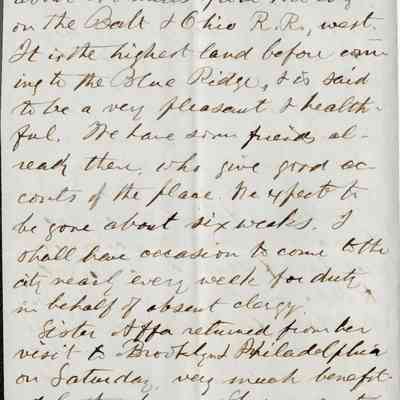 on the Balt & Ohio R. R., west.
It is the highest land before com-
ing to the Blue Ridge, & is said
to be a very pleasant & health-
ful. We have some friends al-
ready there, who give good ac-
counts of the place. We expect to
be gone about six weeks. I
shall have occasion to come to the
city nearly every week for duty
in behalf of absent clergy.
Sister Affa returned from her
visit to Brooklyn & Philadelphia
on Saturday, very much benefit-